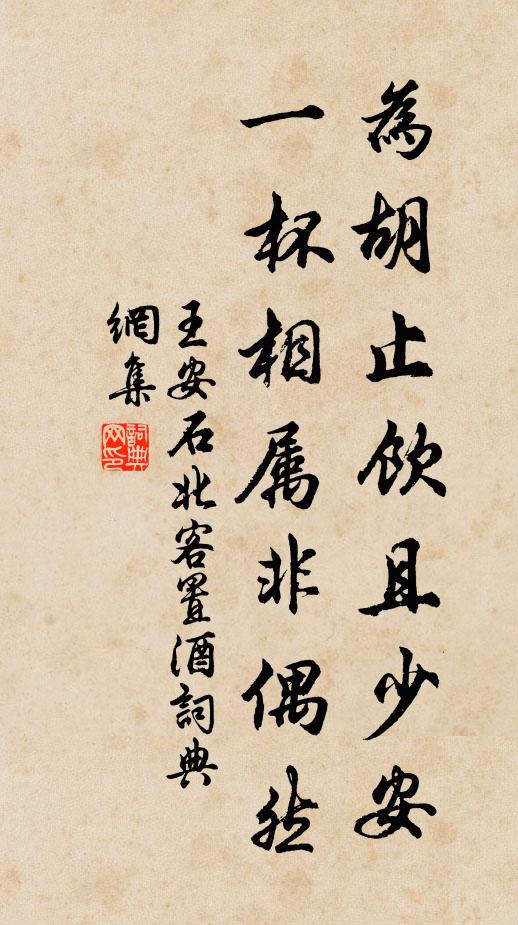 為胡止飲且少安
一杯相属非偶然
王安石北客置酒詞典
網集
詞典
网印